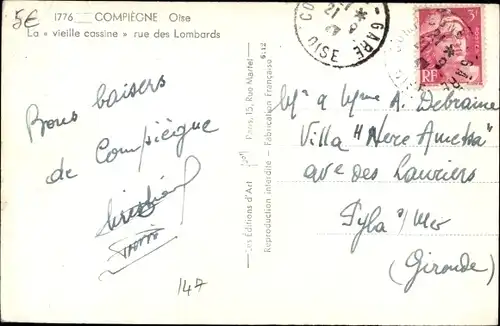 5€
1776 COMPIÈGNE Oise
La « vieille cassine » rue des Lombards
GARE
OISE
21
GARE
RF
Bons baisers
de Compiègne
147
Les Éditions d'Art Paris, 15, Rue Martel
Reproduction interdite - Fabrication Française
Mr & Mme A. Debraine
Villa "Here Ametsa"
ave des Lauriers
Pyla s/Mer
(Gironde)